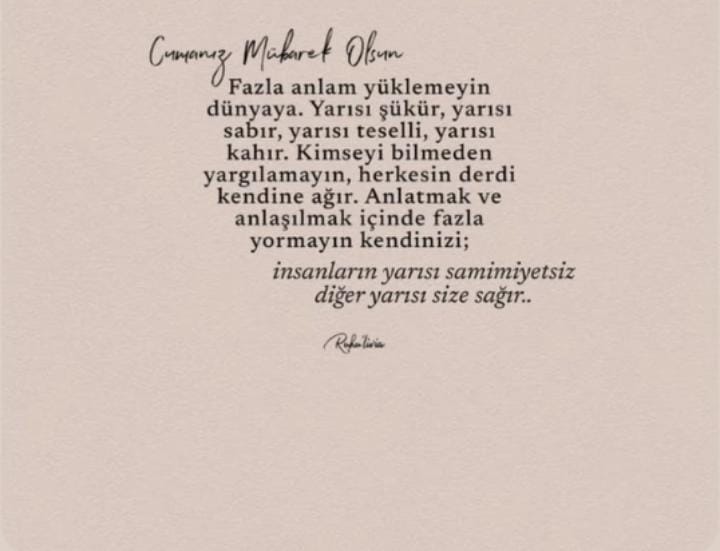 Cumanız Mübarek Olsun
Fazla anlam yüklemeyin
dünyaya. Yarısı şükür, yarısı
sabır, yarısı teselli, yarısı
kahır. Kimseyi bilmeden
yargılamayın, herkesin derdi
kendine ağır. Anlatmak ve
anlaşılmak içinde fazla
yormayın kendinizi;
insanların yarısı samimiyetsiz
diğer yarısı size sağır..